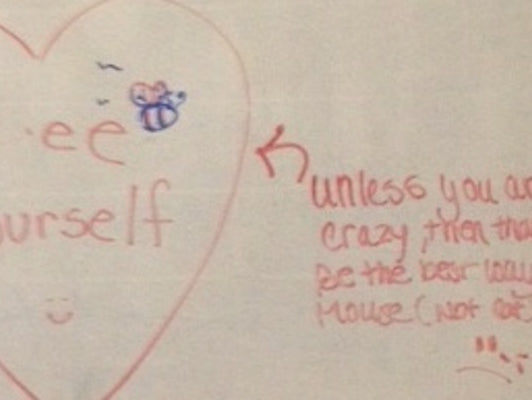 ee
urself
unless you ar
crazy, then tha
Be the best
Mouse (Not